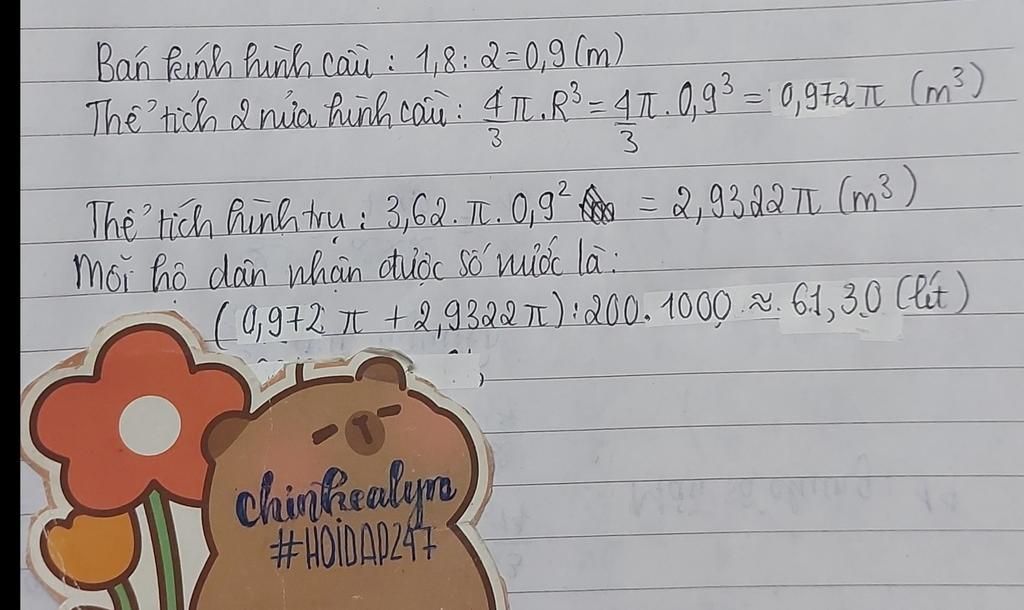 Bán kính hình cầu : 1,8 : 2 = 0,9 (m)
Thể tích 2 nửa hình cầu : 4/3 π . R³ = 4/3 π . 0,9³ = 0,972 π (m³)
Thể tích hình trụ : 3,62 . π . 0,9² = 2,9322 π (m³)
Mỗi hộ dân nhận được số nước là :
(0,972 π + 2,9322 π) : 200 . 1000 ≈ 61,30 (lít)
chinhealyra
#HOIDAP247